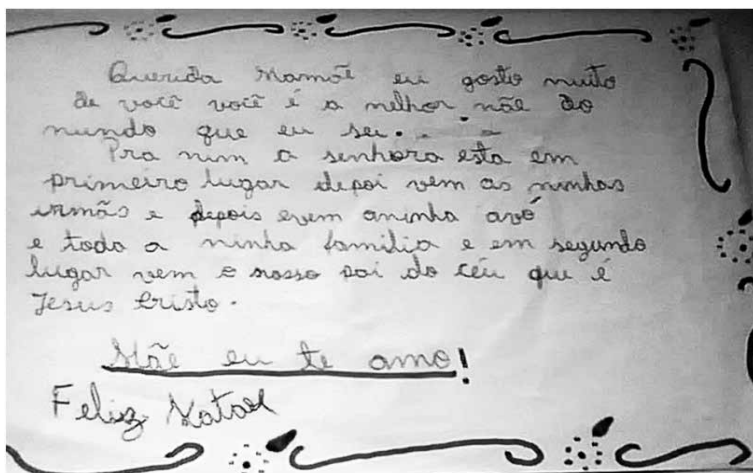 Querida Mamãe eu gosto muito
de você você é a melhor mãe do
mundo que eu sei.
Pra mim a senhora esta em
primeiro lugar depoi vem as minhas
irmãs e depois evem aminha avó
e toda a minha familia e em segundo
lugar vem o nosso pai do céu que é
Jesus Cristo.
Mãe eu te amo!
Feliz Natal